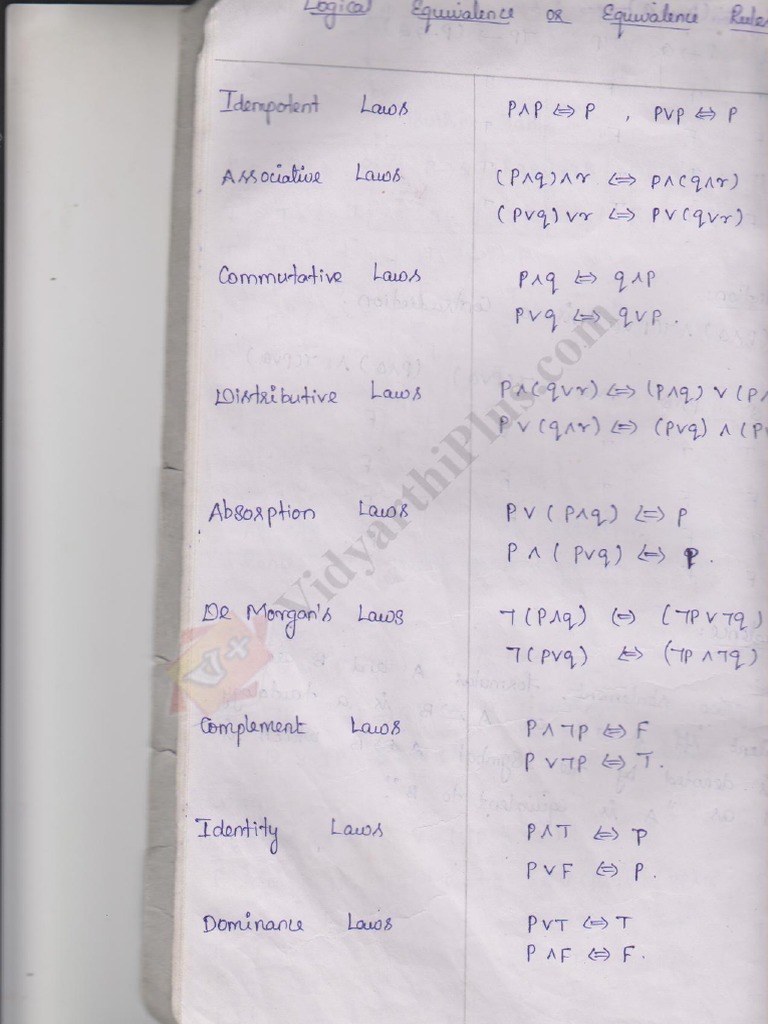 Logical Equivalence or Equivalence Rules
Idempotent Laws P∧P ⇔ P , P∨P ⇔ P
Associative Laws (P∧q)∧r ⇔ P∧(q∧r)
(P∨q)∨r ⇔ P∨(q∨r)
Commutative Laws P∧q ⇔ q∧P
P∨q ⇔ q∨P.
Distributive Laws P∧(q∨r) ⇔ (P∧q) ∨ (P∧
P∨(q∧r) ⇔ (P∨q) ∧ (P∨
Absorption Laws P∨(P∧q) ⇔ P
P∧(P∨q) ⇔ P.
De Morgan's Laws ¬(P∧q) ⇔ (¬P∨¬q)
¬(P∨q) ⇔ (¬P∧¬q)
Complement Laws P∧¬P ⇔ F
P∨¬P ⇔ T.
Identity Laws P∧T ⇔ P
P∨F ⇔ P.
Dominance Laws P∨T ⇔ T
P∧F ⇔ F.
VidyarthiPlus.com
V+